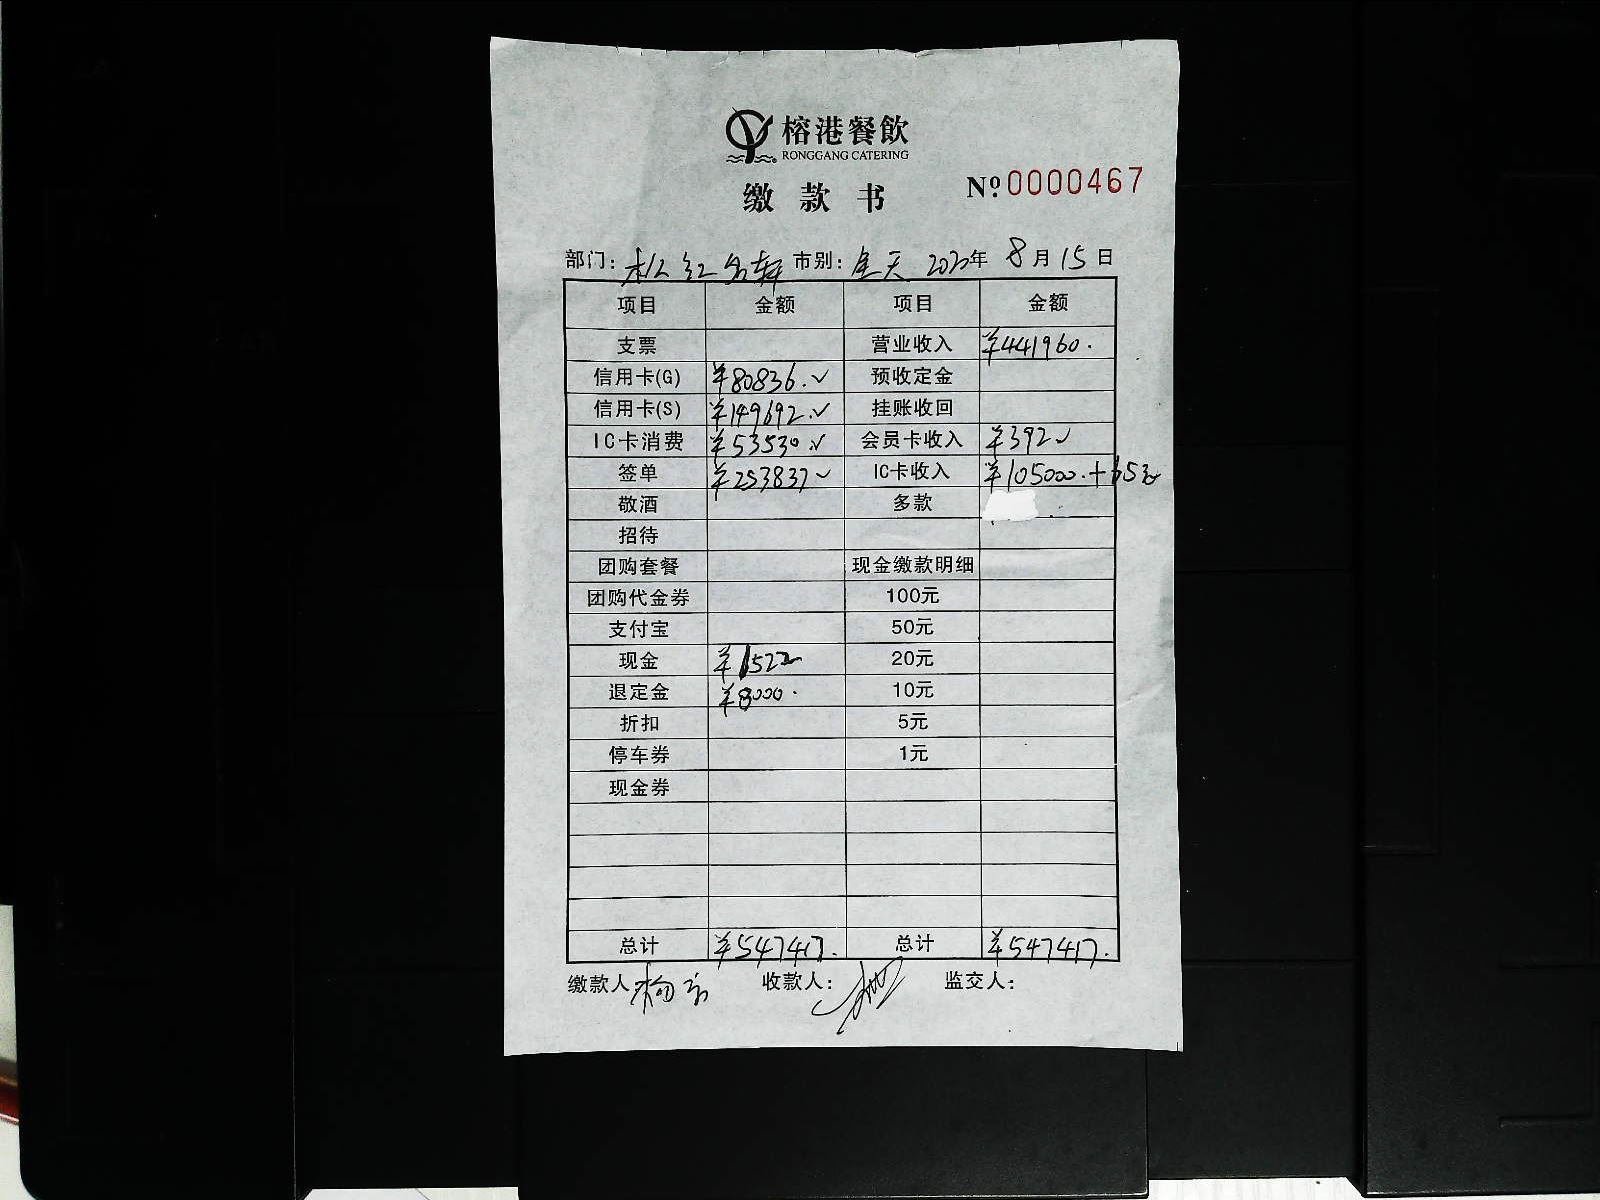 榕港餐飲
RONGGANG CATERING
缴款书 Nº:0000467
部门: 市别: 全天 2020年 8月15日
项目 金额 项目 金额
支票 营业收入 ¥441960.
信用卡(G) ¥80836.✓ 预收定金
信用卡(S) ¥149692.✓ 挂账收回
IC卡消费 ¥53530.✓ 会员卡收入 ¥392✓
签单 ¥253837✓ IC卡收入 ¥105000.+65元
敬酒 多款
招待
团购套餐 现金缴款明细
团购代金券 100元
支付宝 50元
现金 ¥1522 20元
退定金 ¥8000. 10元
折扣 5元
停车券 1元
现金券
总计 ¥547417. 总计 ¥547417.
缴款人 收款人: 监交人: